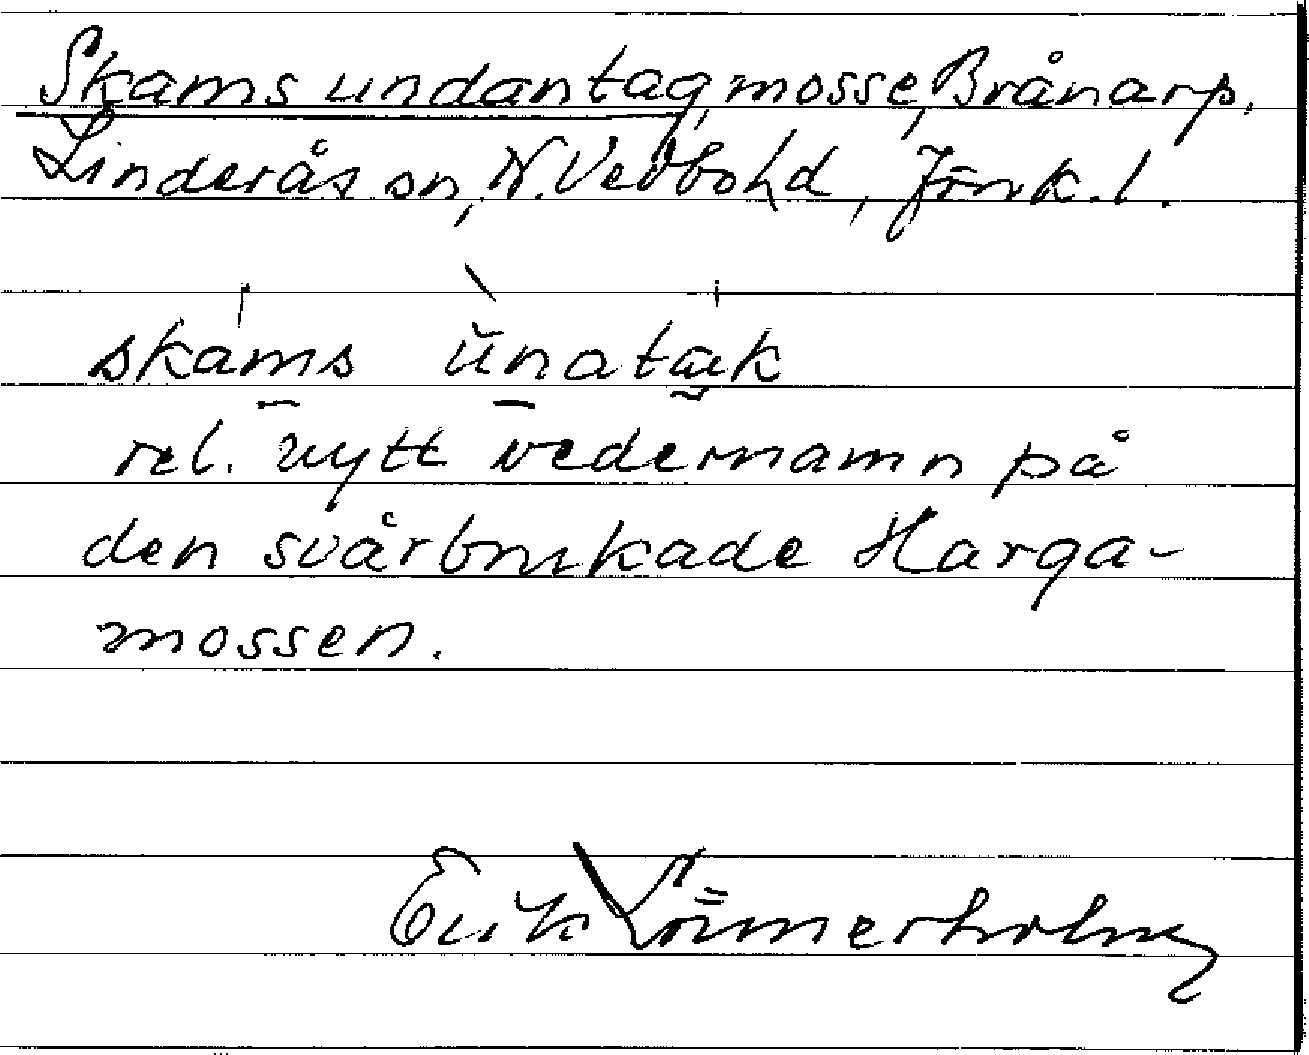 Skams undantag, mosse, Brånarp.
Linderås sn, N. Vedbohd, Jönk.l.
skams ŭnatæk
rel. nytt vedernamn på
den svårbrukade Harga-
mossen.
Erik